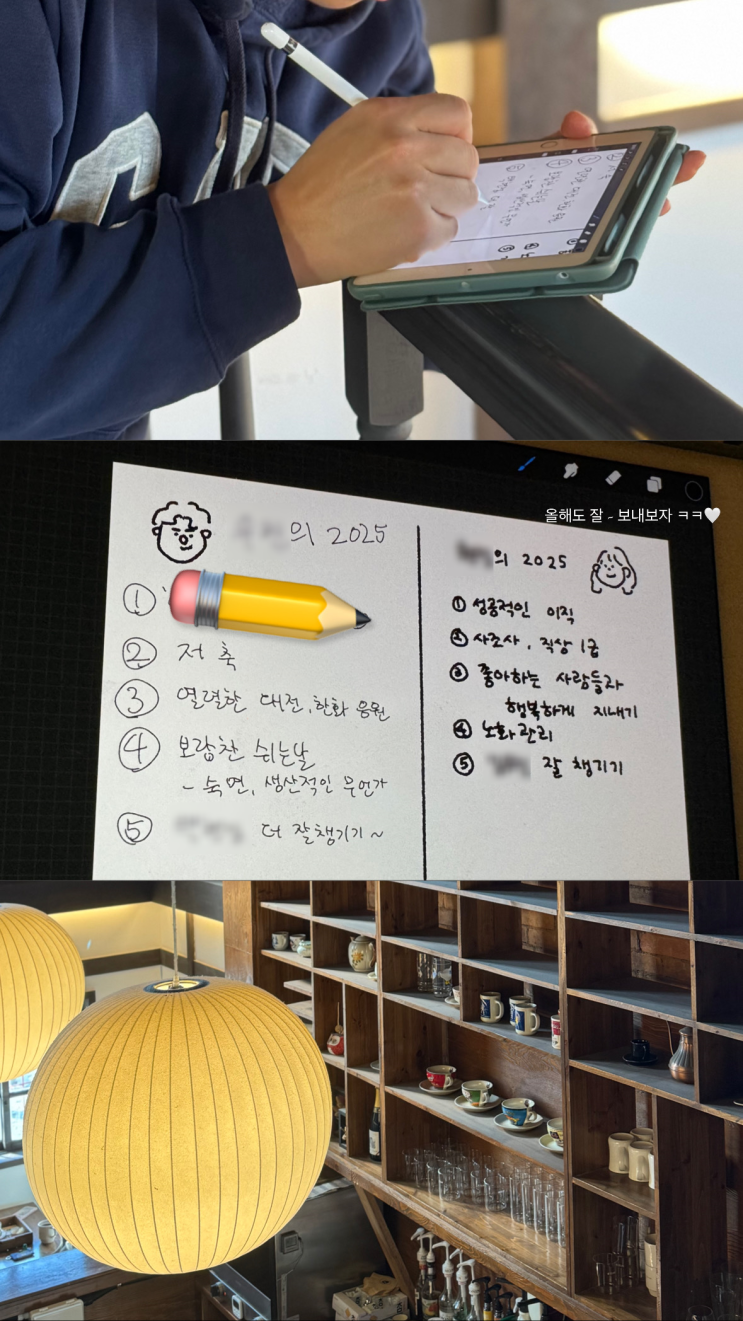 올해도 잘 - 보내보자 ㅋㅋ🤍
의 2025
①
② 저축
③ 열렬한 대전, 한화 응원
④ 보람찬 쉬는날
- 숙면, 생산적인 무언가
⑤ 더 잘챙기기 ~
의 2025
① 성공적인 이직
② 사조사, 직상 1급
③ 좋아하는 사람들과
행복하게 지내기
④ 노화관리
⑤ 잘 챙기기